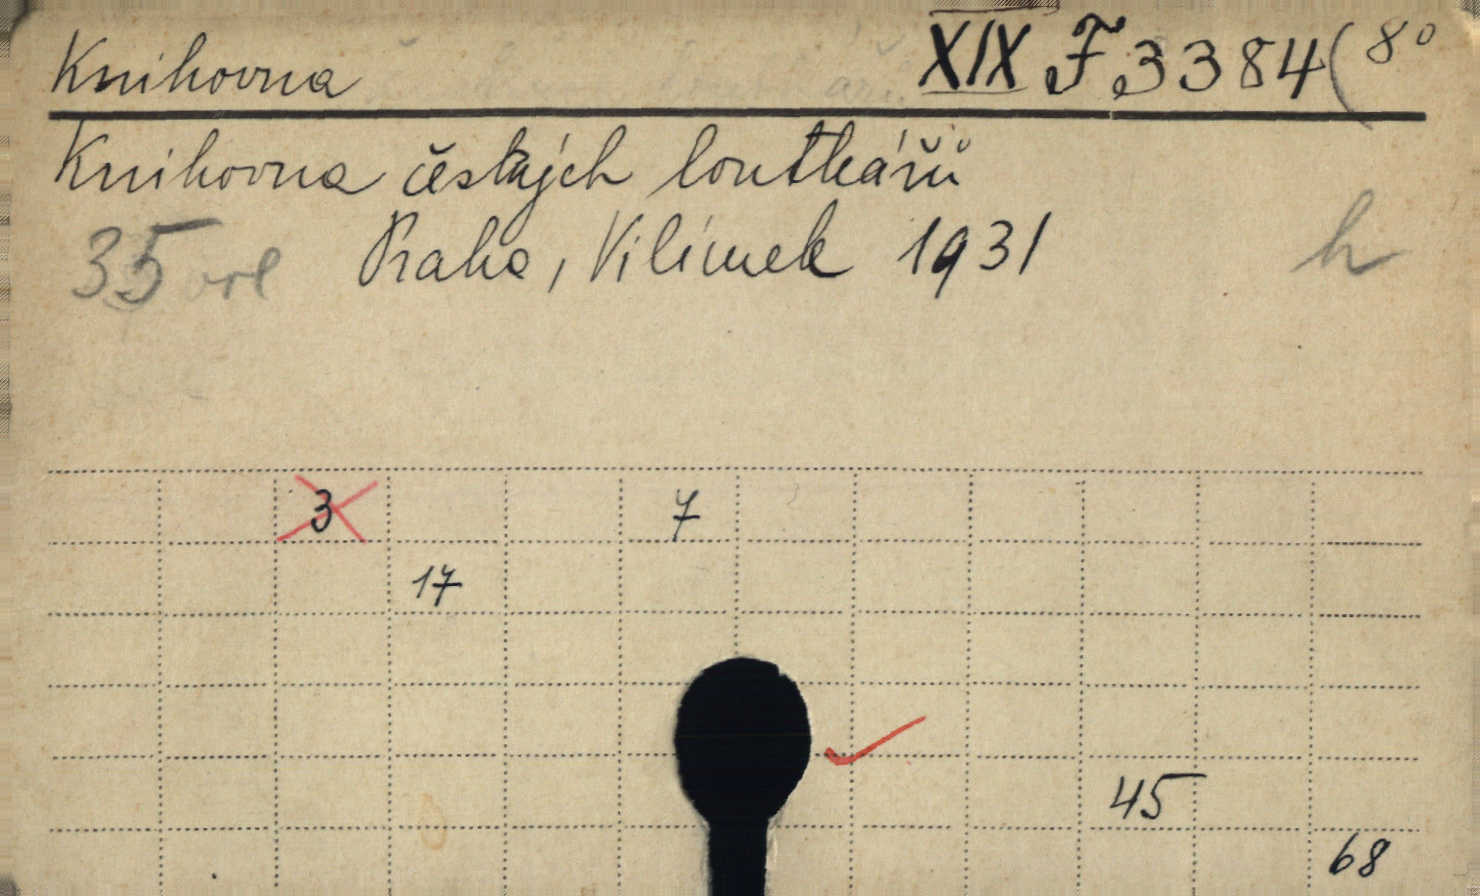 Knihovna XIX F 3384 (8°
Knihovna českých loutkářů
35 Praha, Vilímek 1931 h
3 7
17
45
68